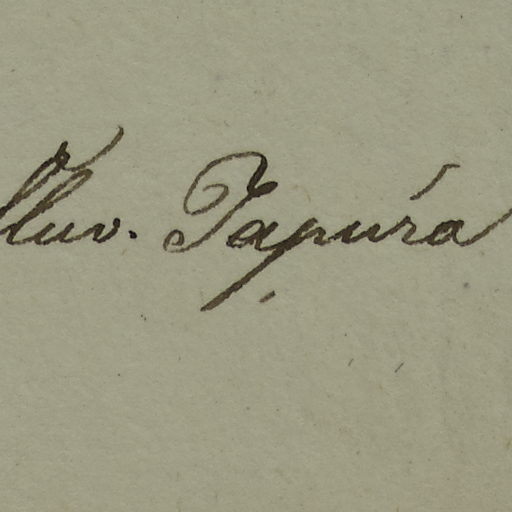 fluv. Japurá